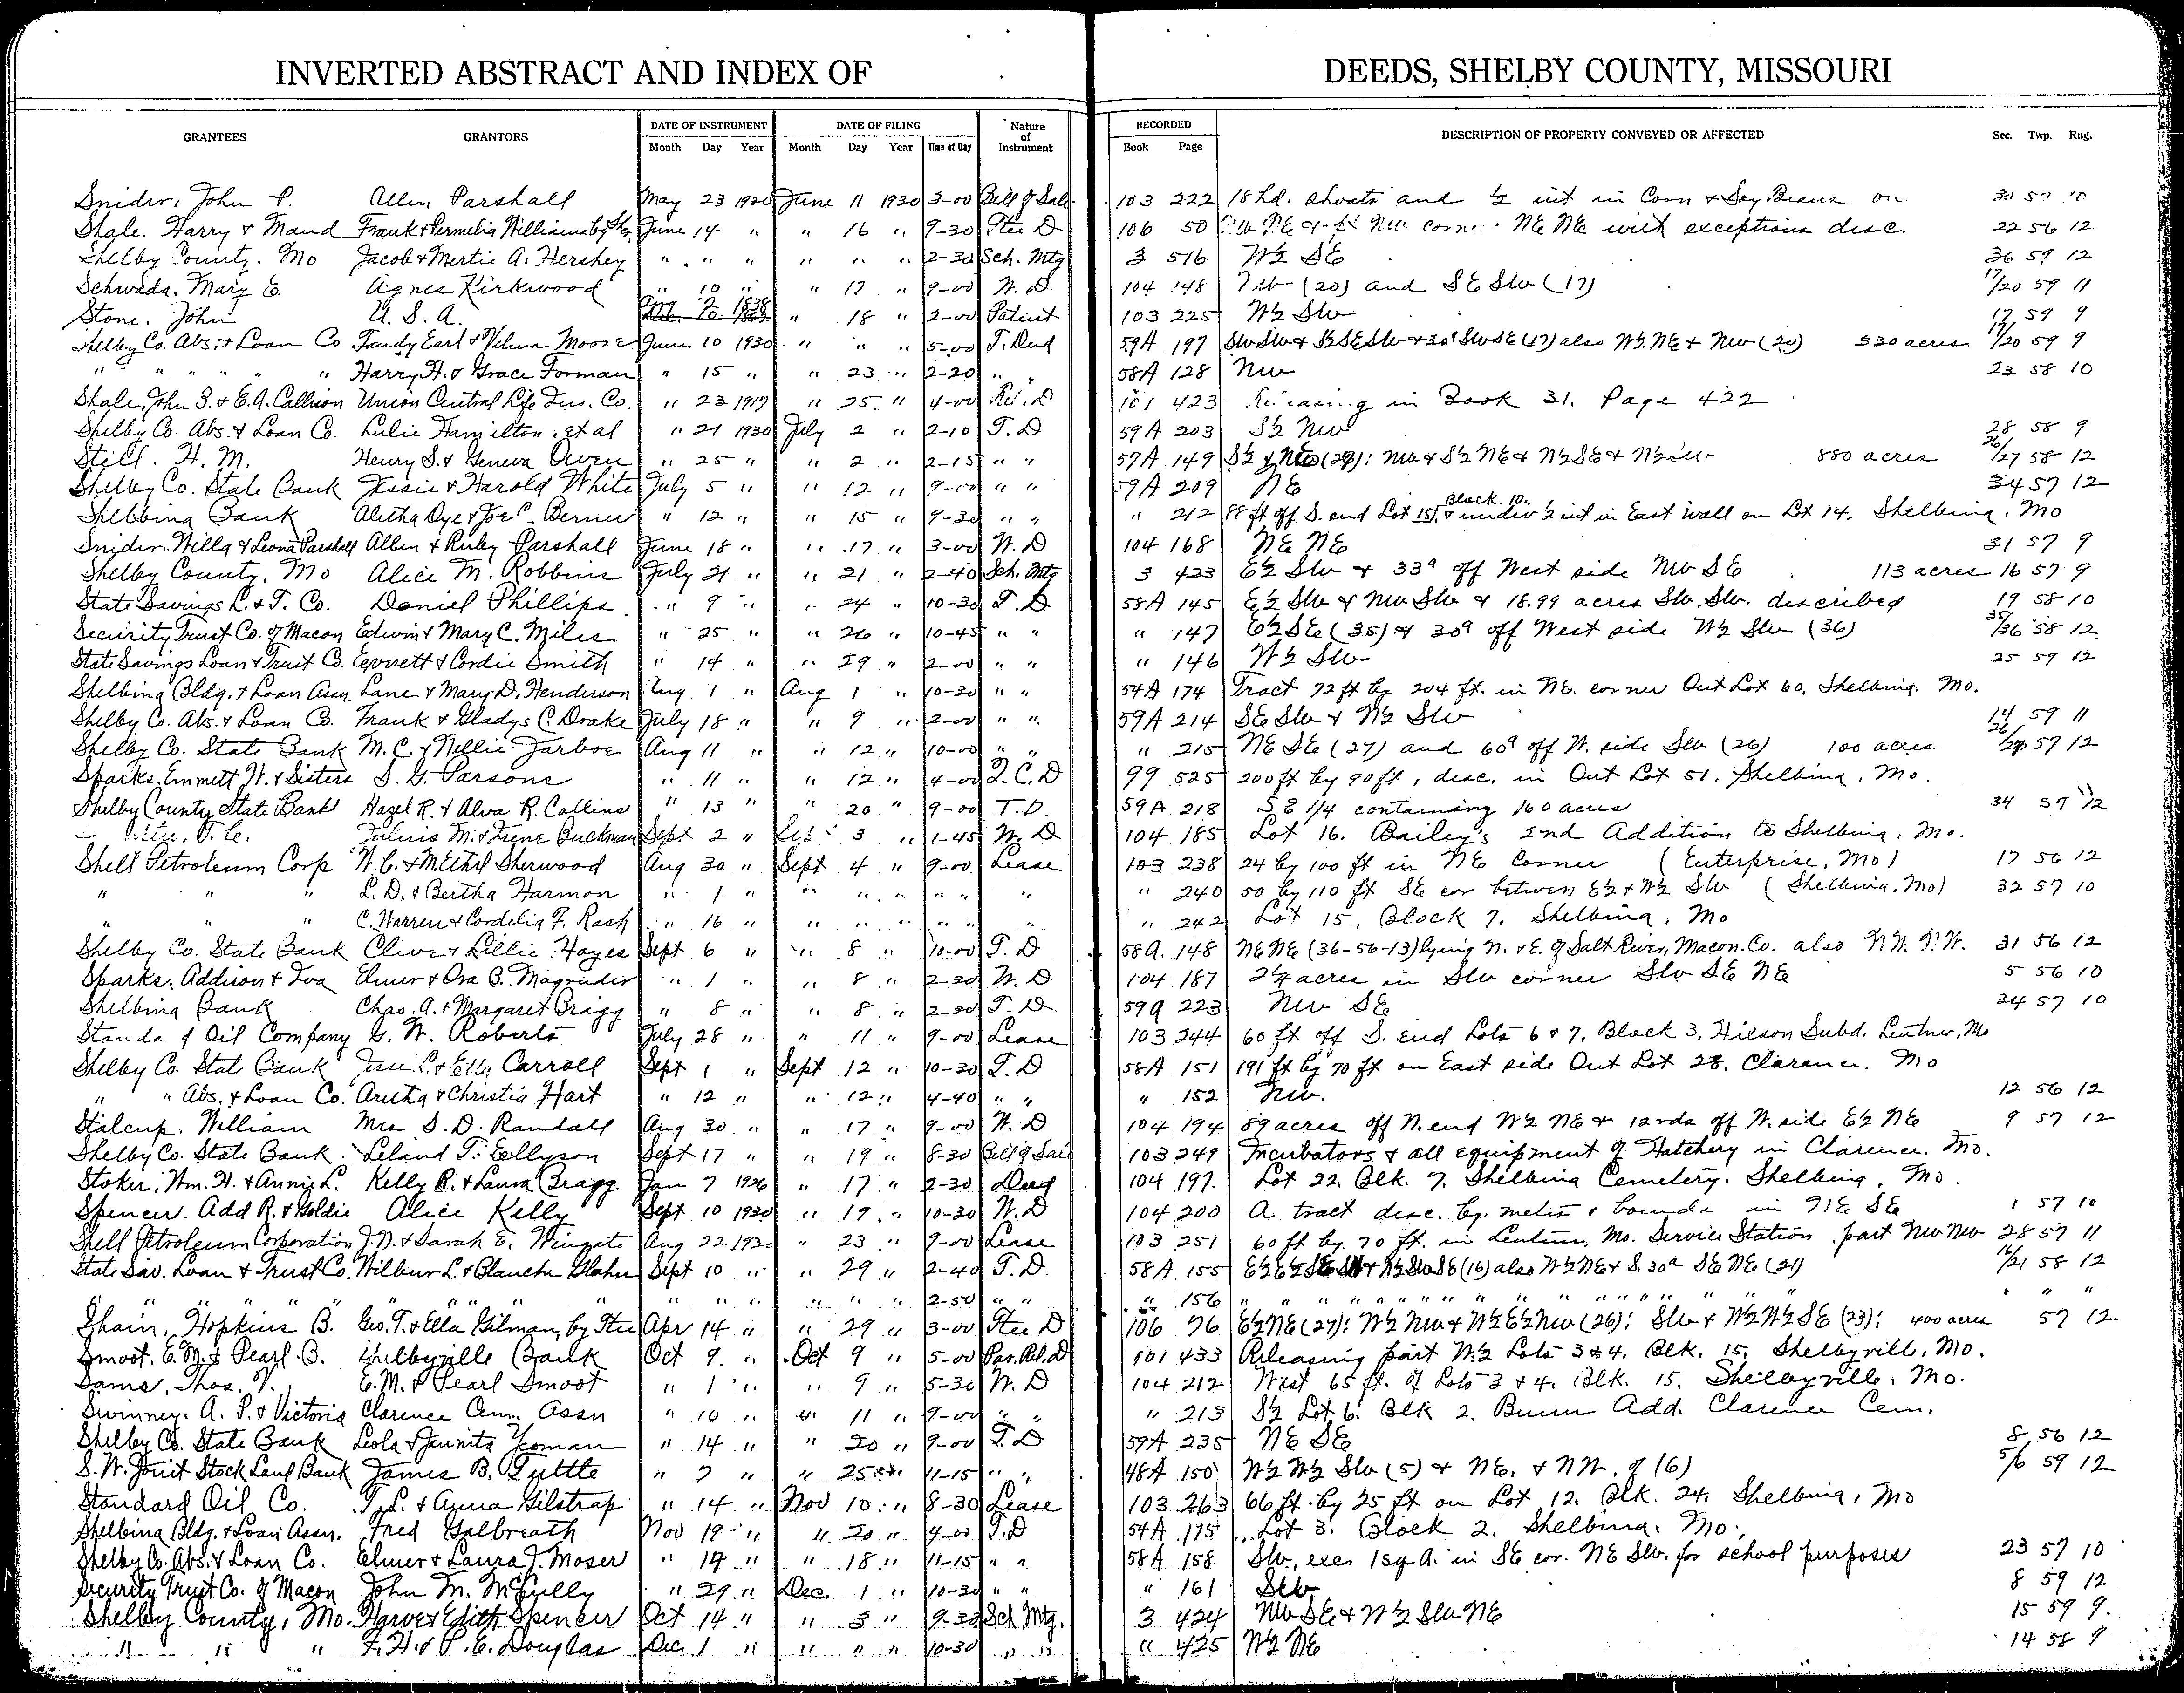 INVERTED ABSTRACT AND INDEX OF DEEDS, SHELBY COUNTY, MISSOURI
GRANTEES GRANTORS DATE OF INSTRUMENT DATE OF FILING Nature of Instrument RECORDED DESCRIPTION OF PROPERTY CONVEYED OR AFFECTED Sec. Twp. Rng.
Month Day Year Month Day Year Time of Day Book Page
Snider, John P. Allen Parshall May 23 1930 June 11 1930 3-00 Bill of Sale 103 222 18 hd. shoats and 1/2 int in Corn & Soy Beans on 30 57 10
Shale. Harry & Maud Frank & Permelia Williams by June 14 " " 16 " 9-30 Stee D 106 50 NE NE with exceptions desc. 22 56 12
Shelby County. Mo Jacob & Mertie A. Hershey " " " " " " 2-30 Sch. Mtg 3 516 W½ SE 36 59 12
Schwada. Mary E. Agnes Kirkwood " 10 " " 17 " 9-00 W. D 104 148 (20) and SE SW (17) 17/20 59 11
Stone. John U. S. A. Aug 2 1838 " 18 " 2-00 Patent 103 225 W½ SW 17 59 9
Shelby Co. Abs. & Loan Co Fandy Earl & Velma Moore June 10 1930 " " " 5-00 T. Deed 59A 197 SW SW & S½ SE SW & SW SE (17) also W½ NE & NW (20) 330 acres 17/20 59 9
" " " " " Harry H. & Grace Forman " 15 " " 23 " 2-20 " " 58A 128 NW 23 58 10
Shale, John S. & E. A. Callison Union Central Life Ins. Co. " 23 1917 " 25 " 4-00 Rel. D 101 423 Releasing in Book 31. Page 422
Shelby Co. Abs. & Loan Co. Lulie Hamilton, et al " 21 1930 July 2 " 2-10 T. D 59A 203 S½ NW 28 58 9
Still. H. M. Henry S. & Geneva Owen " 25 " " 2 " 2-15 " " 57A 149 NW & S½ NE & N½ SE & N½ SW 880 acres 26/27 58 12
Shelby Co. State Bank Jessie & Harold White July 5 " " 12 " 9-00 " " 59A 209 NE 34 57 12
Shelbina Bank Aletha Dye & Joe P. Bernier " 12 " " 15 " 9-30 " " " 212 88 ft off S. end Lot 15, Block 10. & undiv ½ int in East wall on Lot 14. Shelbina, Mo
Snider. Willa & Leona Parshall Allen & Ruby Parshall June 18 " " 17 " 3-00 W. D 104 168 NE NE 31 57 9
Shelby County, Mo Alice M. Robbins July 21 " " 21 " 2-40 Sch. Mtg 3 423 E½ SW & 33a off West side NW SE 113 acres 16 57 9
State Savings L. & T. Co. Daniel Phillips " 9 " " 24 " 10-30 T. D 58A 145 E½ SW & NW SW & 18.99 acres SW. SW. described 19 58 10
Security Trust Co. of Macon Edwin & Mary C. Miles " 25 " " 26 " 10-45 " " " 147 E½ SE (35) & 30a off West side W½ SW (36) 35/36 58 12
State Savings Loan & Trust Co. Everett & Cordie Smith " 14 " " 29 " 2-00 " " " 146 W½ SW 25 59 12
Shelbina Bldg. & Loan Assn. Lane & Mary D. Henderson Aug 1 " Aug 1 " 10-30 " " 54A 174 Tract 72 ft by 204 ft. in NE. corner Out Lot 60, Shelbina. Mo.
Shelby Co. Abs. & Loan Co. Frank & Gladys C. Drake July 18 " " 9 " 2-00 " " 59A 214 SE SW & W½ SW 14 59 11
Shelby Co. State Bank M. C. & Nellie Jarboe Aug 11 " " 12 " 10-00 " " " 215 NE SE (27) and 60a off W. side SW (26) 100 acres 26/27 57 12
Sparks. Emmett W. & Sisters S. G. Parsons " 11 " " 12 " 4-00 Q. C. D 99 525 200 ft by 90 ft, desc. in Out Lot 51, Shelbina, Mo.
Shelby County State Bank Hazel R. & Alva R. Collins " 13 " " 20 " 9-00 T. D. 59A 218 SE 1/4 containing 160 acres 34 57 12
Julius M. & Irene Buckman Sept 2 " Sept 3 " 1-45 W. D 104 185 Lot 16. Bailey's 2nd Addition to Shelbina, Mo.
Shell Petroleum Corp W. C. & M. Ethel Sherwood Aug 30 " Sept 4 " 9-00 Lease 103 238 24 by 100 ft in NE Corner (Enterprise, Mo) 17 56 12
" " " L. D. & Bertha Harmon " 1 " " " " " " " 240 50 by 110 ft SE cor between E½ & W½ SW (Shelbina, Mo) 32 57 10
" " " C. Warren & Cordelia F. Rash " 16 " " " " " " " 242 Lot 15, Block 7. Shelbina, Mo
Shelby Co. State Bank Clive & Lillie Hayes Sept 6 " " 8 " 10-00 T. D 58A. 148 NE NE (36-56-13) lying N. & E. of Salt River, Macon Co. also N.W. N.W. 31 56 12
Sparks. Addison & Iva Elmer & Ora B. Magruder " 1 " " 8 " 2-30 W. D 104 187 2¼ acres in SW corner SW SE NE 5 56 10
Shelbina Bank Chas. A. & Margaret Bragg " 8 " " 8 " 2-30 T. D 59A 223 NW SE 34 57 10
Standard Oil Company G. W. Roberts July 28 " " 11 " 9-00 Lease 103 244 60 ft off S. end Lots 6 & 7, Block 3, Hixson Subd. Lentner, Mo
Shelby Co. State Bank Jesse L. & Etta Carroll Sept 1 " Sept 12 " 10-30 T. D 58A 151 191 ft by 70 ft on East side Out Lot 28. Clarence. Mo
" " Abs. & Loan Co. Aretha & Christia Hart " 12 " " 12 " 4-40 " " " 152 NW. 12 56 12
Stalcup. William Mrs S. D. Randall Aug 30 " " 17 " 9-00 W. D 104 194 89 acres off N. end W½ NE & 12 rds off W. side E½ NE 9 57 12
Shelby Co. State Bank. Leland T. Eellyson Sept 17 " " 19 " 8-30 Bill of Sale 103 249 Incubators & all equipment of Hatchery in Clarence. Mo.
Stoker, Wm. H. & Annie L. Kelly R. & Laura Bragg. Jan 7 1926 " 17 " 2-30 Deed 104 197. Lot 22. Blk. 7. Shelbina Cemetery. Shelbina, Mo.
Spencer. Add R. & Goldie Alice Kelly Sept 10 1930 " 19 " 10-30 W. D 104 200 A tract desc. by metes & bounds in NE SE 1 57 10
Shell Petroleum Corporation J. N. & Sarah E. Wingate Aug 22 1930 " 23 " 9-00 Lease 103 251 60 ft by 70 ft. in Lentner, Mo. Service Station part NW NW 28 57 11
State Sav. Loan & Trust Co. Wilbur L. & Blanche Glahn Sept 10 " " 29 " 2-40 T. D. 58A 155 (16) also W½ NE & S. 30a SE NE (21) 16/21 58 12
" " " " " " " " " " " " " 2-50 " " " 156 " " " " " " " " " " " "
Shain, Hopkins B. Geo. T. & Ella Gilman, by Stee Apr 14 " " 29 " 3-00 Stee D 106 76 E½ NE (27): W½ NW & W½ E½ NW (26): SW & W½ W½ SE (23): 400 acres 57 12
Smoot. E. M. & Pearl B. Shelbyville Bank Oct 9. " Oct 9 " 5-00 Par. Rel. D 101 433 Releasing part W½ Lots 3 & 4. Blk. 15. Shelbyville, Mo.
Sams, Thos. V. E. M. & Pearl Smoot " 1 " " 9 " 5-30 W. D 104 212 West 65 ft. of Lots 3 & 4. Blk. 15. Shelbyville, Mo.
Swinney. A. P. & Victoria Clarence Cem. Assn " 10 " " 11 " 9-00 " " " 213 S½ Lot 6. Blk 2. Bunn Add. Clarence Cem.
Shelby Co. State Bank Leola & Juanita Yeoman " 14 " " 20 " 9-00 T. D 59A 235 NE SE 8 56 12
S. W. Joint Stock Land Bank James B. Tuttle " 7 " " 25 " 11-15 " " 48A 150 W½ W½ SW (5) & NE. & NW. of (6) 5/6 59 12
Standard Oil Co. T. L. & Anna Gilstrap " 14 " Nov 10 " 8-30 Lease 103 263 66 ft. by 25 ft on Lot 12. Blk. 24. Shelbina, Mo
Shelbina Bldg. & Loan Assn. Fred Galbreath Nov 19 " " 20 " 4-00 T. D 54A 175 Lot 3. Block 2. Shelbina. Mo.
Shelby Co. Abs. & Loan Co. Elmer & Laura J. Moser " 17 " " 18 " 11-15 " " 58A 158 SW., exc. 1 sq A. in SE cor. NE SW. for school purposes 23 57 10
Security Trust Co. of Macon John M. McCully " 29 " Dec. 1 " 10-30 " " " 161 SW 8 59 12
Shelby County, Mo. Harve & Edith Spencer Oct 14 " " 3 " 9-30 Sch. Mtg. 3 424 NW SE & W½ SW NE 15 59 9.
" " " F. H. & P. E. Douglas Dec. 1 " " " " 10-30 " " " 425 W½ NE 14 58 9